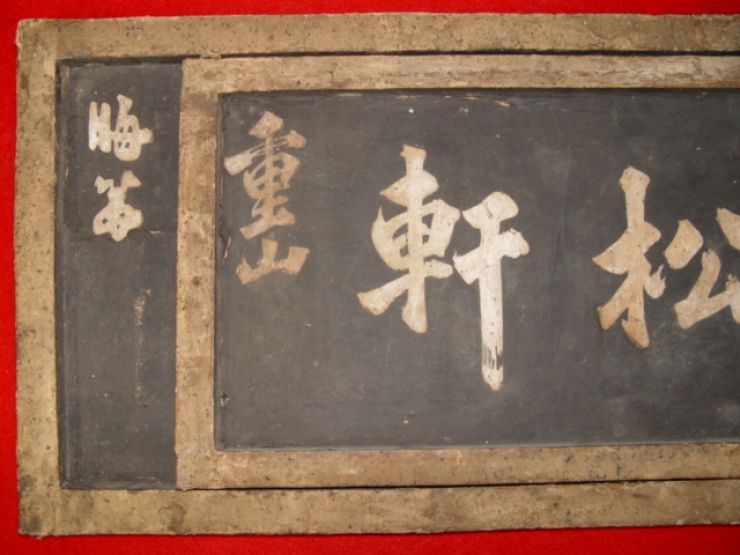 松軒
重山
晦